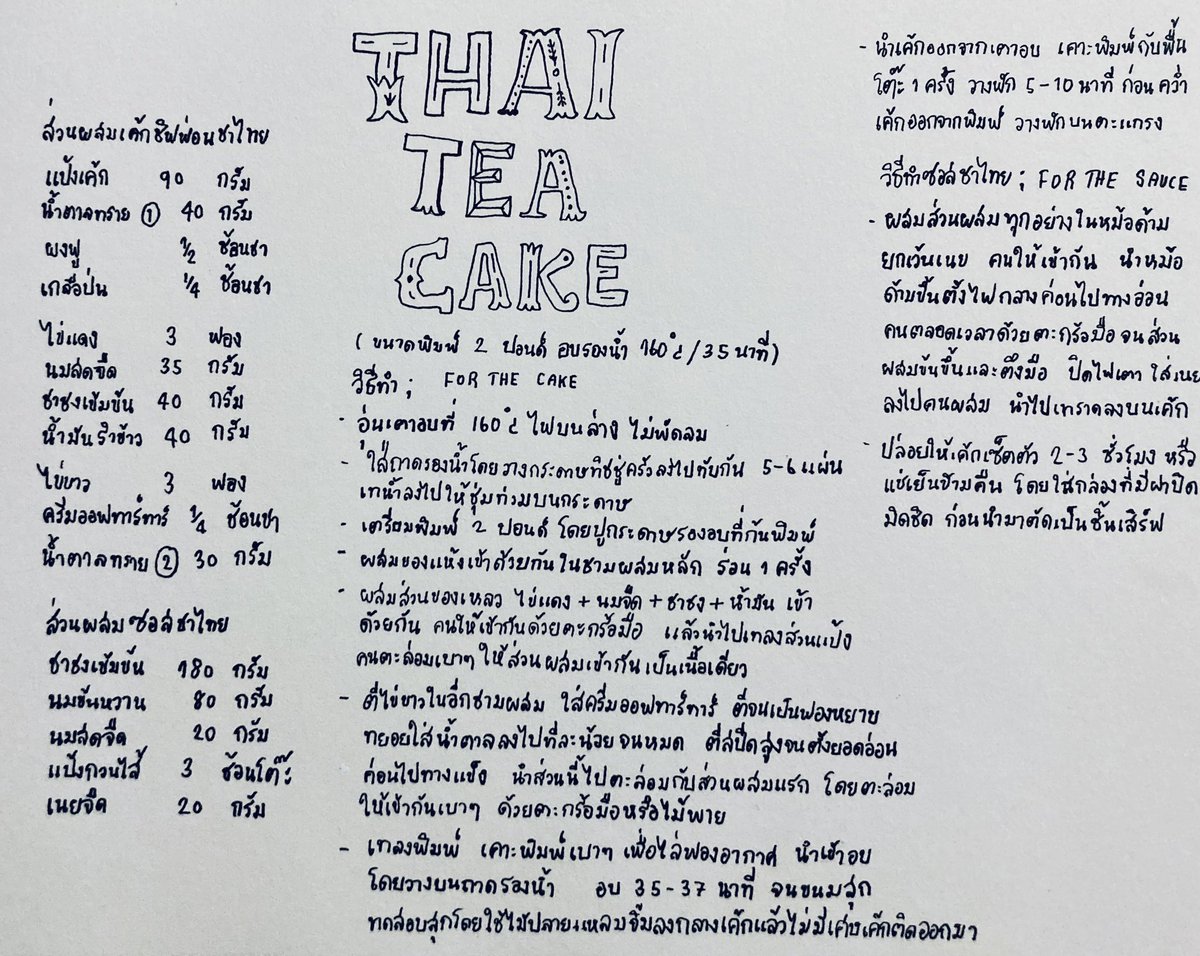 THAI
TEA
CAKE
ส่วนผสมเค้กชิฟฟ่อนชาไทย
แป้งเค้ก 90 กรัม
น้ำตาลทราย ① 40 กรัม
ผงฟู ½ ช้อนชา
เกลือป่น ¼ ช้อนชา
ไข่แดง 3 ฟอง
นมสดจืด 35 กรัม
ชาชงเข้มข้น 40 กรัม
น้ำมันรำข้าว 40 กรัม
ไข่ขาว 3 ฟอง
ครีมออฟทาร์ทาร์ ¼ ช้อนชา
น้ำตาลทราย ② 30 กรัม
ส่วนผสมซอสชาไทย
ชาชงเข้มข้น 180 กรัม
นมข้นหวาน 80 กรัม
นมสดจืด 20 กรัม
แป้งกวนไส้ 3 ช้อนโต๊ะ
เนยจืด 20 กรัม
(ขนาดพิมพ์ 2 ปอนด์ อบรองน้ำ 160°c/35 นาที)
วิธีทำ ; FOR THE CAKE
- อุ่นเตาอบที่ 160°c ไฟบนล่าง ไม่พัดลม
- ใส่ถาดรองน้ำโดยวางกระดาษทิชชู่ครัวลงไปทับกัน 5-6 แผ่น
เทน้ำลงไปให้ชุ่มท่วมบนกระดาษ
- เตรียมพิมพ์ 2 ปอนด์ โดยปูกระดาษรองอบที่ก้นพิมพ์
- ผสมของแห้งเข้าด้วยกันในชามผสมหลัก ร่อน 1 ครั้ง
- ผสมส่วนของเหลว ไข่แดง + นมจืด + ชาชง + น้ำมัน เข้า
ด้วยกัน คนให้เข้ากันด้วยตะกร้อมือ แล้วนำไปเทลงส่วนแป้ง
คนตะล่อมเบาๆ ให้ส่วนผสมเข้ากันเป็นเนื้อเดียว
- ตีไข่ขาวในอีกชามผสม ใส่ครีมออฟทาร์ทาร์ ตีจนเป็นฟองหยาบ
ทยอยใส่น้ำตาลลงไปทีละน้อยจนหมด ตีสปีดสูงจนตั้งยอดอ่อน
ค่อนไปทางแข็ง นำส่วนนี้ไปตะล่อมกับส่วนผสมแรก โดยตะล่อม
ให้เข้ากันเบาๆ ด้วยตะกร้อมือหรือไม้พาย
- เทลงพิมพ์ เคาะพิมพ์เบาๆ เพื่อไล่ฟองอากาศ นำเข้าอบ
โดยวางบนถาดรองน้ำ อบ 35-37 นาที จนขนมสุก
ทดสอบสุกโดยใช้ไม้ปลายแหลมจิ้มลงกลางเค้กแล้วไม่มีเศษเค้กติดออกมา
- นำเค้กออกจากเตาอบ เคาะพิมพ์กับพื้น
โต๊ะ 1 ครั้ง วางพัก 5-10 นาที ก่อนคว่ำ
เค้กออกจากพิมพ์ วางพักบนตะแกรง
วิธีทำซอสชาไทย ; FOR THE SAUCE
- ผสมส่วนผสมทุกอย่างในหม้อด้าม
ยกเว้นเนย คนให้เข้ากัน นำหม้อ
ด้ามขึ้นตั้งไฟกลางค่อนไปทางอ่อน
คนตลอดเวลาด้วยตะกร้อมือ จนส่วน
ผสมข้นขึ้นและตึงมือ ปิดไฟเตา ใส่เนย
ลงไปคนผสม นำไปเทราดลงบนเค้ก
- ปล่อยให้เค้กเซ็ตตัว 2-3 ชั่วโมง หรือ
แช่เย็นข้ามคืน โดยใส่กล่องที่มีฝาปิด
มิดชิด ก่อนนำมาตัดเป็นชิ้นเสิร์ฟ